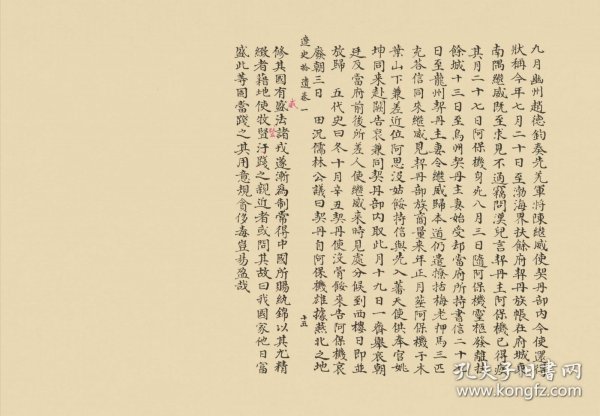 九月幽州趙德鈞奏先差軍將陳繼威使契丹部內今使還得
狀稱今年七月二十日至渤海界扶餘府契丹族帳在府城東
南隅繼威既至求見不通竊問漢兒言契丹主阿保機已得疾
其月二十七日阿保機身死八月三日隨阿保機靈柩發離扶
餘城十三日至烏州契丹主妻始受却當府所持書信二十七
日至龍州契丹主妻令繼威歸本道仍遣撩括梅老押馬三匹
充荅信同來繼威見契丹部族商量來年正月葬阿保機于木
葉山下兼差近位阿思沒姑餒持信與先入蕃天使供奉官姚
坤同來赴闕告哀兼聞契丹部內取此月十九日一齊舉哀朝
廷及當府前後所差人使繼威來時見處分候到西樓日即並
放歸 五代史曰冬十月辛丑契丹使沒骨餒來告阿保機哀
廢朝三日 田況儒林公議曰契丹自阿保機雄據燕北之地
遼史拾遺卷一 十五
修其國有盛法諸戎遂漸為制嘗得中國所賜統錦以其尤精
緻者藉地使牧豎汙踐之親近者或問其故曰我國家他日富
盛此等固當踐之其用意規貪侈毒豈易盈哉
孔夫子旧书网
www.kongfz.com